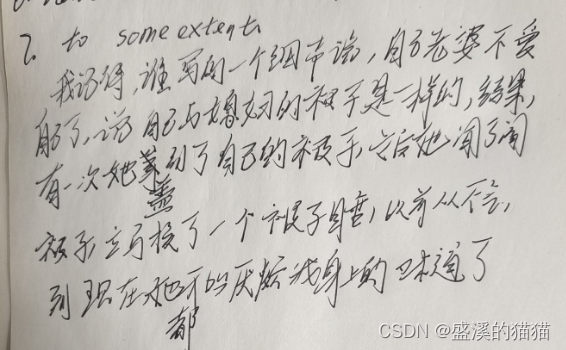 7. to some extent.
我记得,谁写的一个细节说,自己老婆不爱
自己了,说自己与媳妇的被子是一样的,结果,
有一次她盖到了自己的被子,然后她闻了闻
被子,立马换了一个被子自盖,以前从不会,
到现在她都开始厌烦我身上的味道了
CSDN @盛溪的猫猫